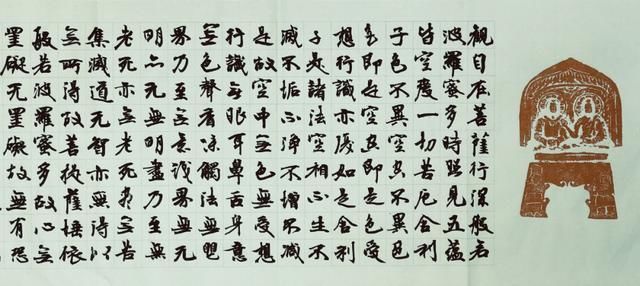 觀自在菩薩行深般若
波羅蜜多時照見五蘊
皆空度一切苦厄舍利
子色不異空空不異色
色即是空空即是色受
想行識亦復如是舍利
子是諸法空相不生不
滅不垢不淨不增不減
是故空中無色無受想
行識无眼耳鼻舌身意
無色聲香味觸法無眼
界乃至无意識界無无
明亦无無明盡乃至無
老死亦无老死盡無苦
集滅道无智亦無得以
無所得故菩提薩埵依
般若波羅蜜多故心無
罣礙无罣礙故無有恐